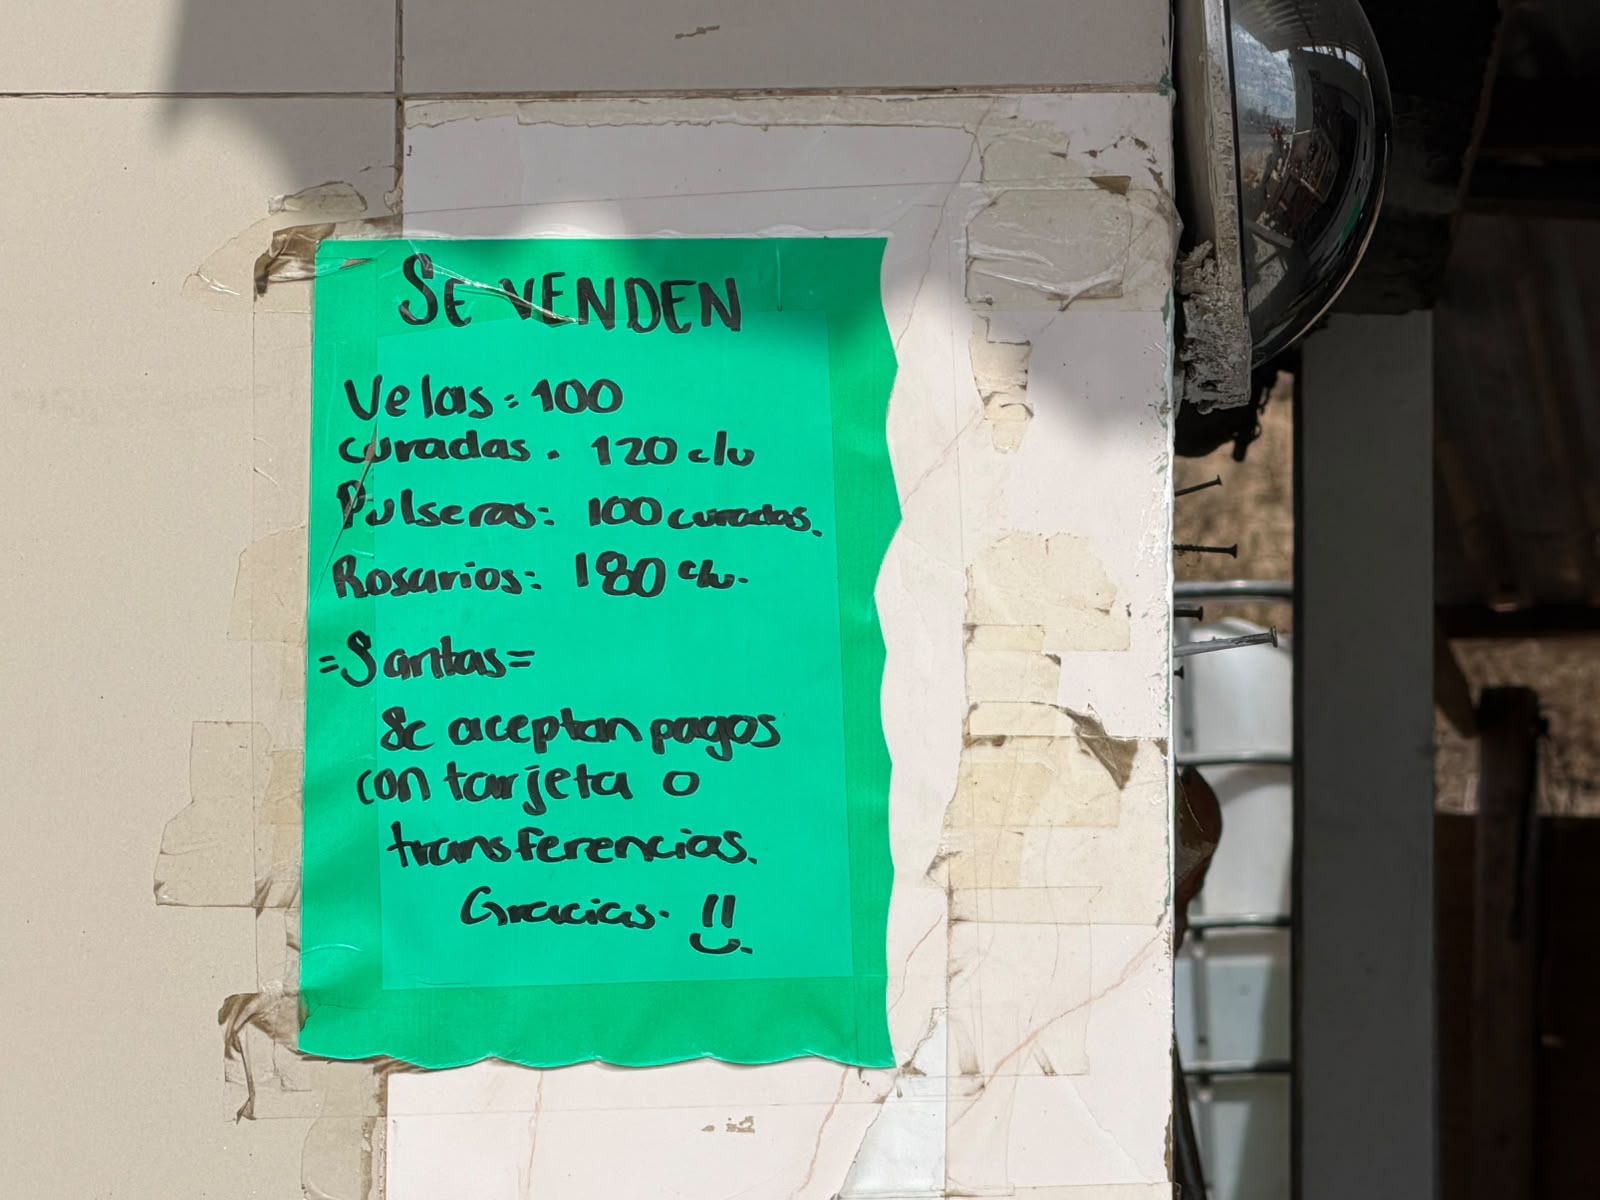 SE VENDEN
Velas: 100
curadas. 120 c/u
Pulseras: 100 curadas.
Rosarios: 180 c/u.
=Santas=
Se aceptan pagos
con tarjeta o
transferencias.
Gracias. !!